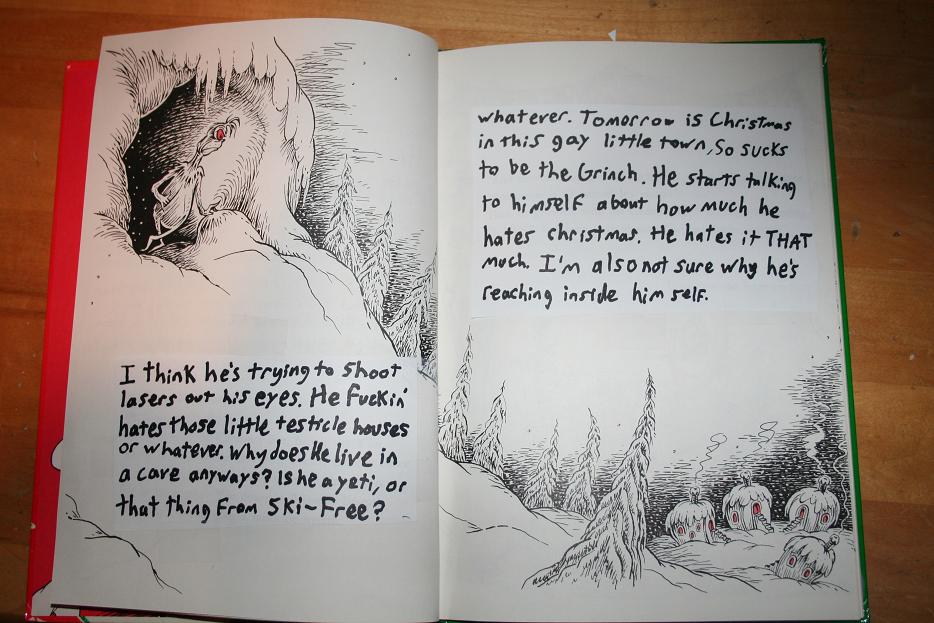 I think he's trying to shoot
lasers out his eyes. He Fuckin'
hates those little testicle houses
or whatever. Why does He live in
a cave anyways? Is he a yeti, or
that thing From Ski-Free?
whatever. Tomorrow is Christmas
in this gay little town, So sucks
to be the Grinch. He starts talking
to himself about how much he
hates christmas. He hates it THAT
much. I'm also not sure why he's
reaching inside him self.